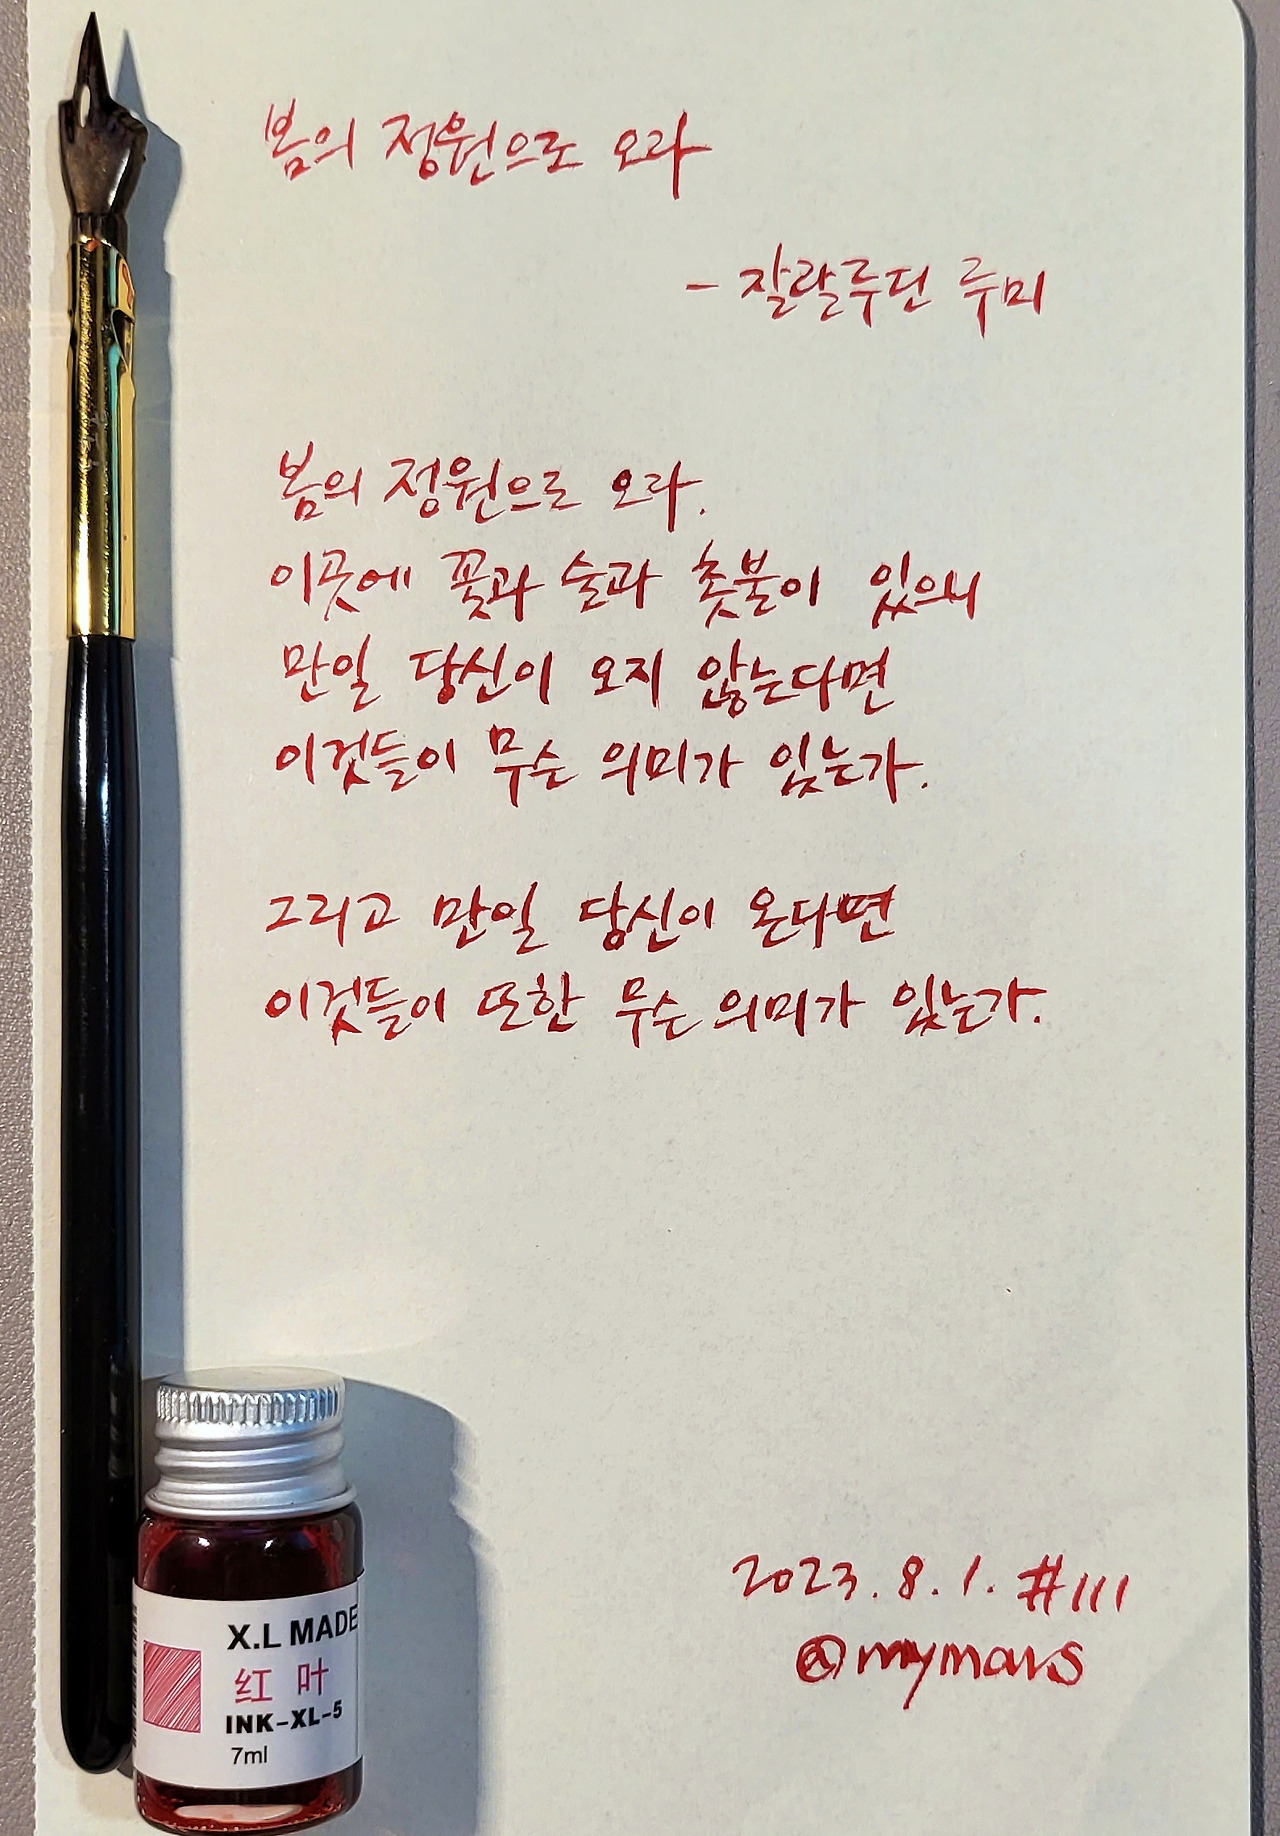 봄의 정원으로 오라
- 잘랄루딘 루미
봄의 정원으로 오라.
이곳에 꽃과 술과 촛불이 있으니
만일 당신이 오지 않는다면
이것들이 무슨 의미가 있는가.
그리고 만일 당신이 온다면
이것들이 또한 무슨 의미가 있는가.
2023. 8. 1. #111
@mymars
X.L MADE
红 叶
INK-XL-5
7ml